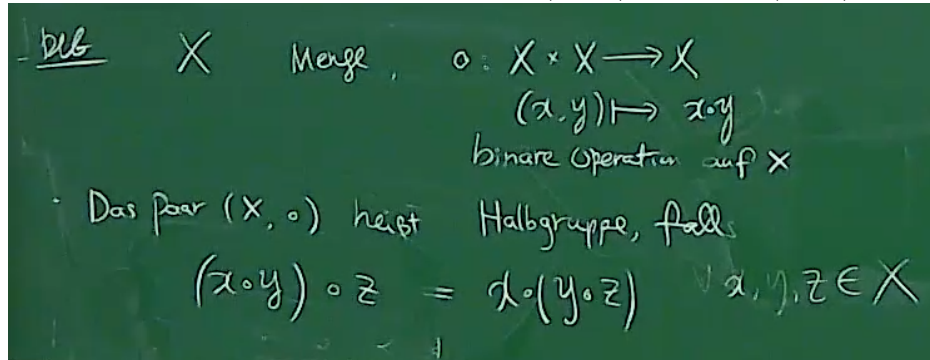 Def X Menge, ∘: X × X ⟶ X
(x,y) ⟼ x∘y
binäre Operation auf X
· Das Paar (X, ∘) heißt Halbgruppe, falls
(x∘y)∘z = x∘(y∘z) ∀ x,y,z ∈ X